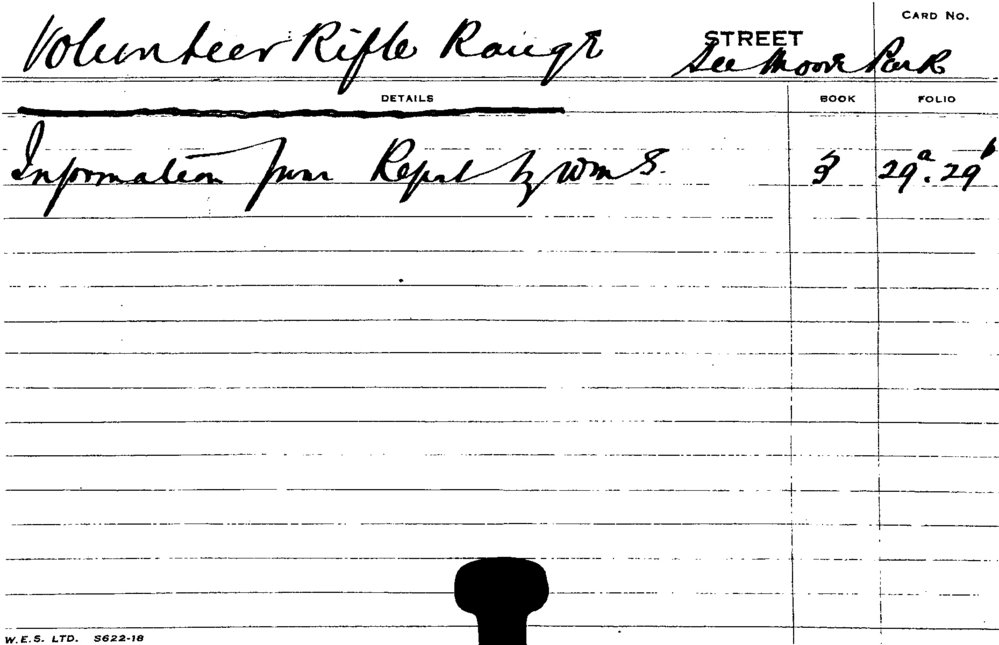 CARD NO.
Volunteer Rifle Range STREET
See Moore Park
DETAILS BOOK FOLIO
Information from Report by Wm S. 3 29a. 29b
W.E.S. LTD. S622-18